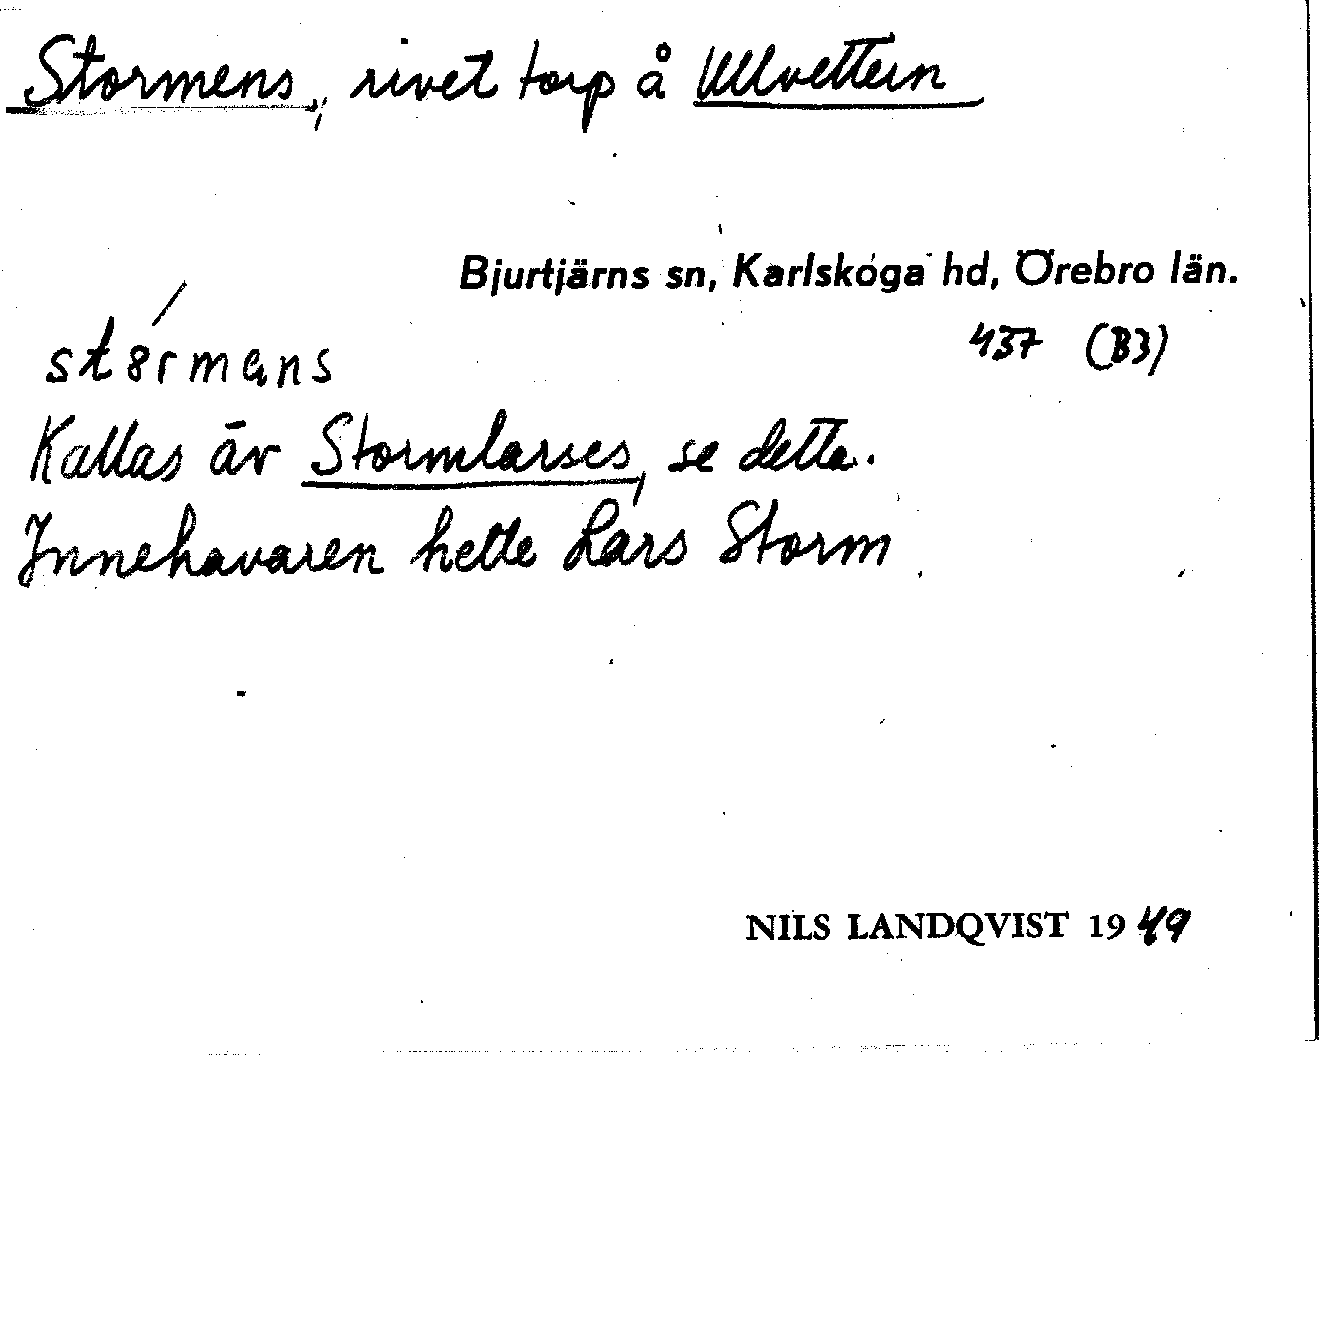 Stormens, rivet torp å Ullvettern
Bjurtjärns sn, Karlskoga hd, Örebro län.
437 (B3)
st8́rmans
Kallas äv Stormlarses, se detta.
Innehavaren hette Lars Storm
NILS LANDQVIST 1949